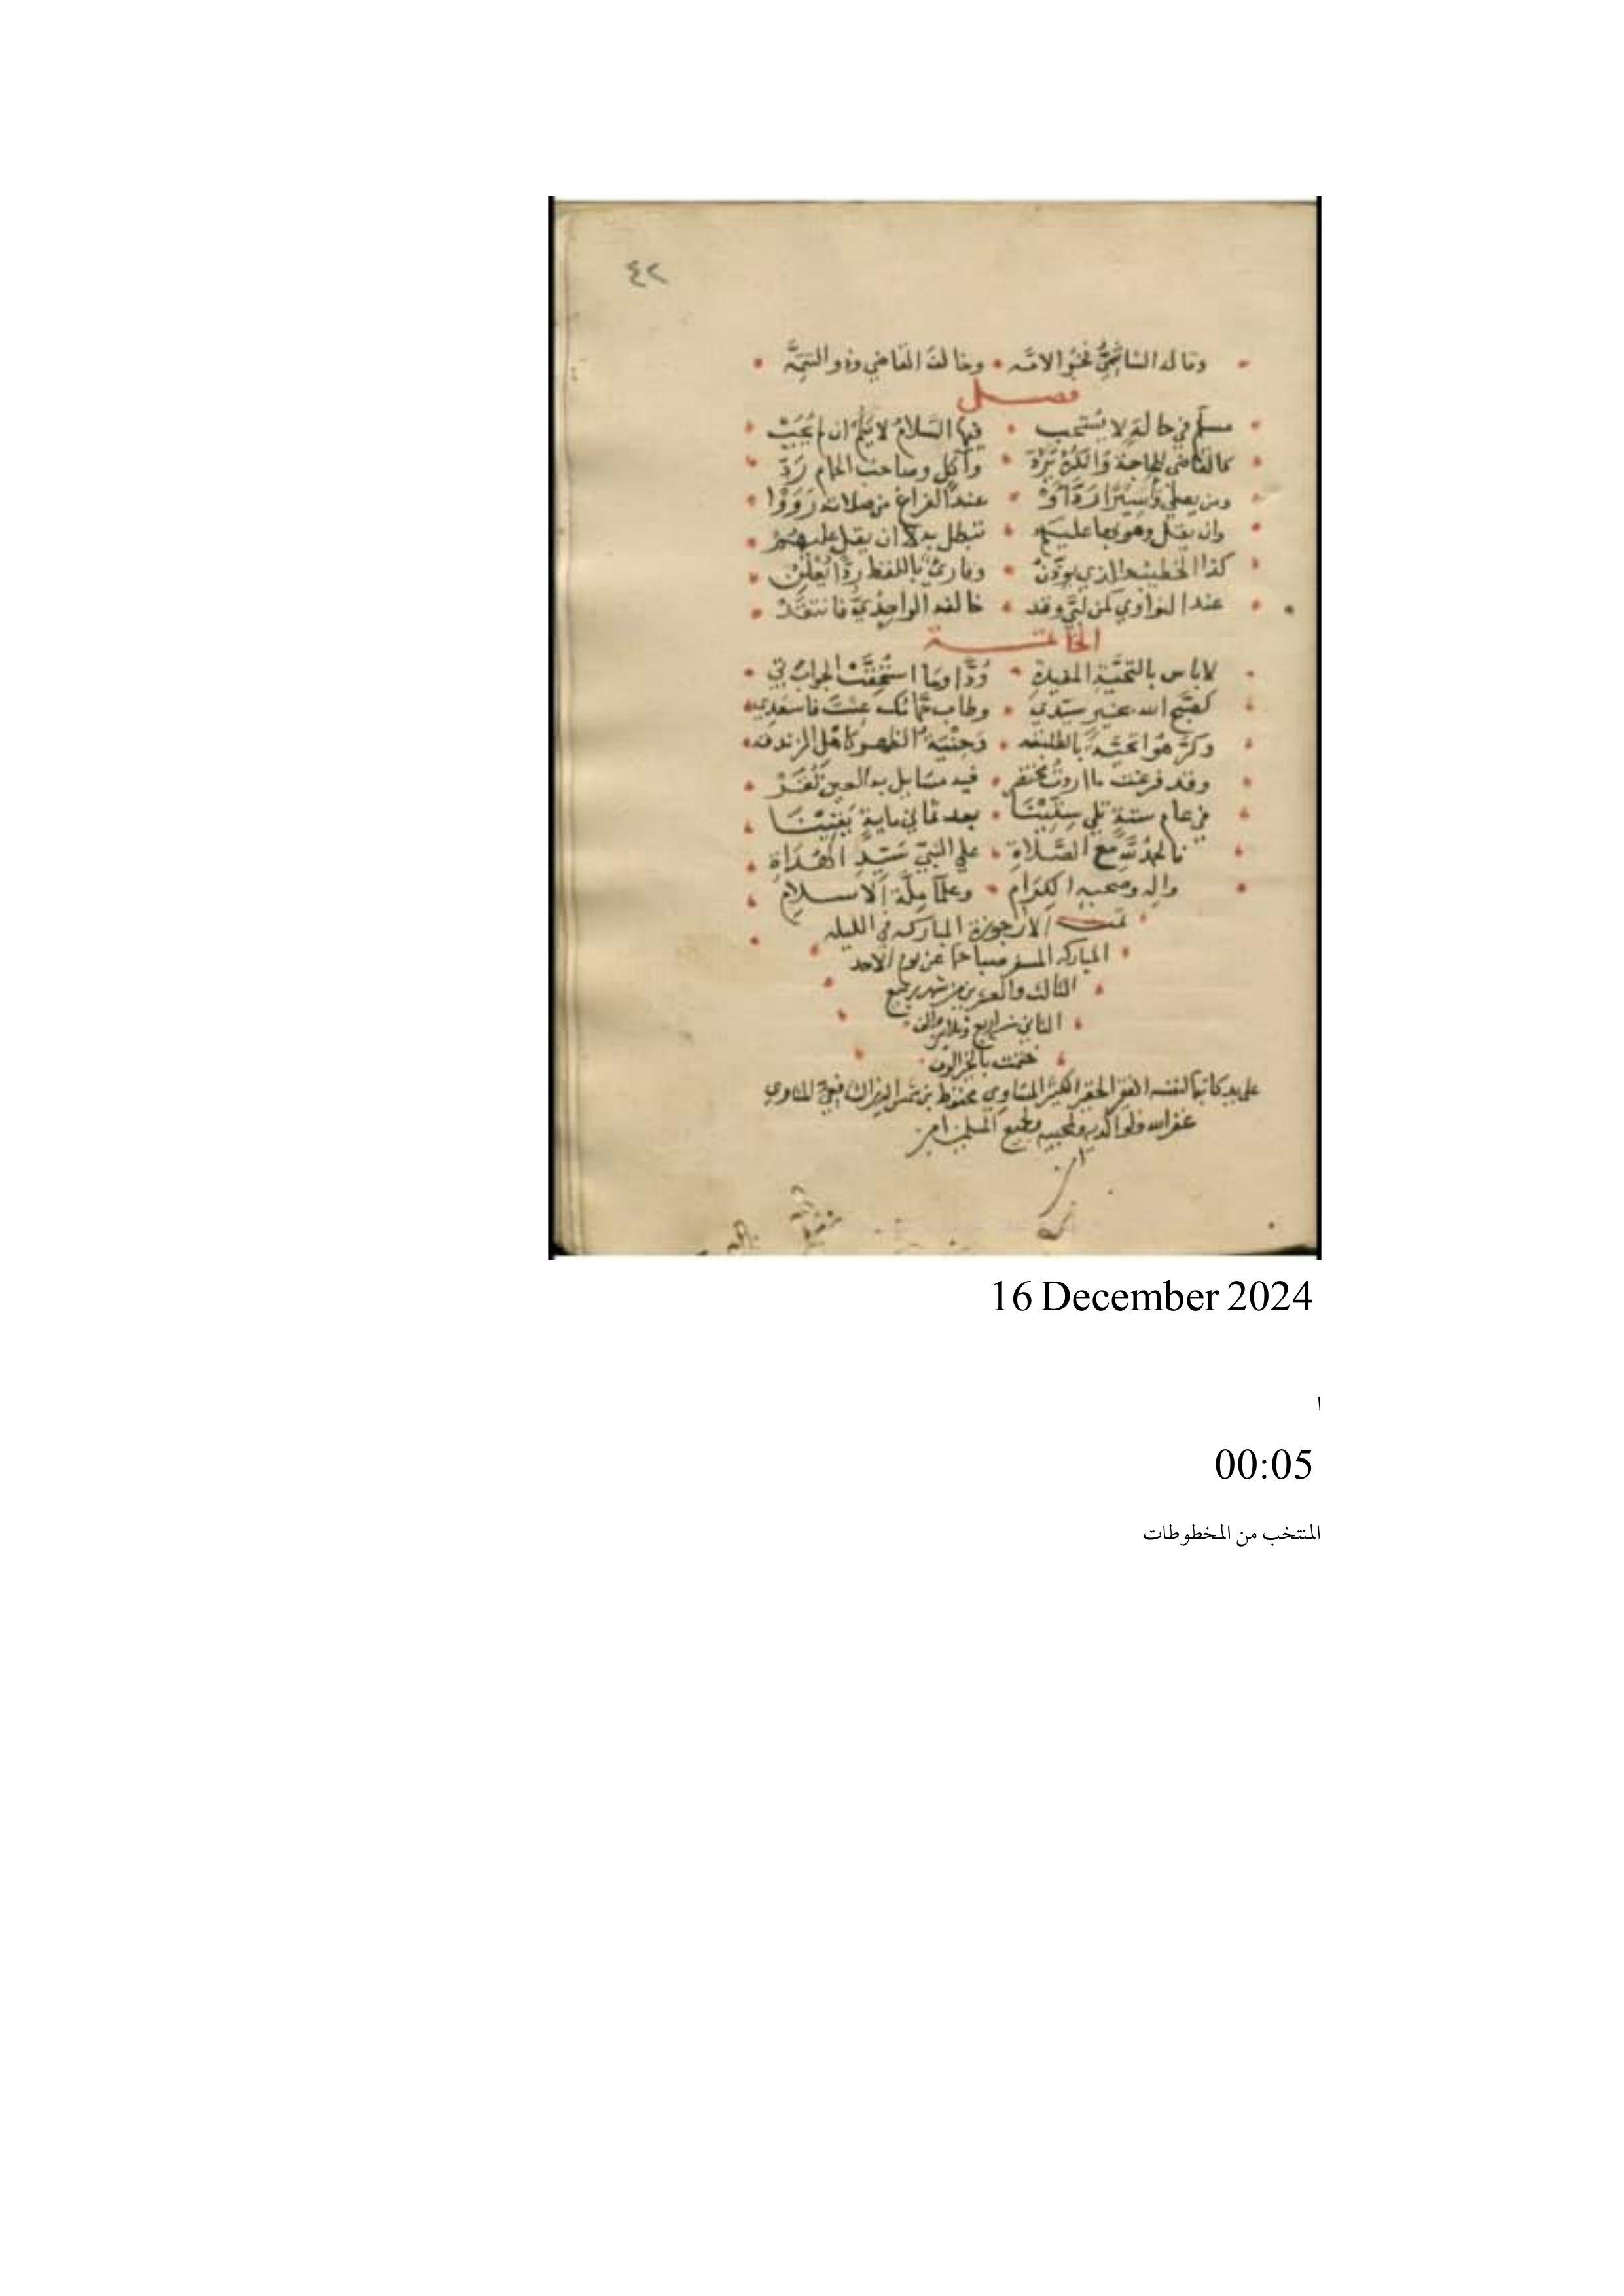 ٤٢
وقاله الشاشي نخبو الامه • وخالف القاضي وذو التتمه
فصل
مسلم في حالة لا يستحب • فيها السلام لا يلم ان لم يجب
كالقاضي للحاجة • وآكل وصاحب الحمام رد
ومن يصلي • عند الفراغ من صلاته رووا
وان يقل وهو بها عليكم • تبطل به لا ان يقل عليهم
كذا الخطيب والذي يوذن • وقارئ باللفظ ردا يعلن
عند النواوي كمن لبى وقد • خالفه الواحدي فانتقد
الخاتمة
لا باس بالتحية المفيدة • ودا وما استحقت الجواب تي
كصبح الله بخير سيدي • وطاب حمامك عشت فاسعدي
وكرهوا تحية بالطلبقه • وحنية الظهر كاهل الزندقه
وقد فرغت ما اردت مختصر • فيه مسايل بدا العين تغر
في عام ستة تلي ستينا • بعد ثماني ماية يقينا
فالحمد لله مع الصلاة • علي النبي سيد الهداة
واله وصحبه الكرام • وعلما ملة الاسلام
تمت الارجوزة المباركه في الليله
المباركه المسفر صباحها عن يوم الاحد
الثالث والعشرين من شهر ربيع
الثاني سنة اربع وثلاثين والف
ختمت بالخير
علي يد كاتبها لنفسه الفقير الحقير الكثير المساوي محفوظ بن شمس الدين المناوي
غفر الله له ولوالديه ولمحبيه ولجميع المسلمين امين
امين
16 December 2024
ا
00:05
المنتخب من المخطوطات